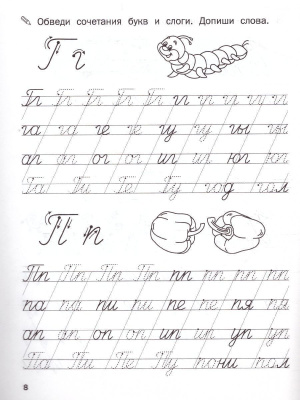 Обведи сочетания букв и слоги. Допиши слова.
Г г
Гг Гг Гг Гг Гг гг гг гг гг гг
га га ге ге гу гу гы гы
аг аг ог ог иг иг юг юг
Га Ги Ге Гу год гам
П п
Пп Пп Пп Пп пп пп пп пп
па па пи пи пе пе пя пя
ап ап оп оп ип ип уп уп
Па Пи Пе Пу пони пом
8